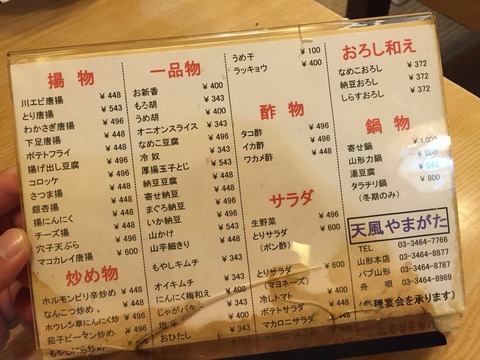 揚 物
川エビ唐揚 ¥ 448
とり唐揚 ¥ 543
わかさぎ唐揚 ¥ 496
下足唐揚 ¥ 448
ポテトフライ ¥ 448
揚げ出し豆腐 ¥ 496
コロッケ ¥ 496
さつま揚 ¥ 448
銀杏揚 ¥ 448
揚にんにく ¥ 448
チーズ揚 ¥ 496
穴子天ぷら ¥ 496
マコカレイ唐揚 ¥ 600
炒め物
ホルモンピリ辛炒め ¥ 448
なんこつ炒め ¥ 448
ホウレン草にんにく炒 ¥ 496
茄子ピーマン炒め ¥ 496
¥ 448
一品物
お新香 ¥ 400
もろ胡 ¥ 343
うめ胡 ¥ 400
オニオンスライス ¥ 343
なめこ豆腐 ¥ 496
冷 奴 ¥ 343
厚揚玉子とじ
納豆豆腐
寄せ納豆
まぐろ納豆
いか納豆
山かけ
山芋細きり
もやしキムチ ¥ 343
オイキムチ ¥ 343
にんにく梅和え ¥ 400
じゃがバタ
¥ 343
おひたし ¥ 343
うめ干 ¥ 100
ラッキョウ ¥ 400
酢 物
タコ酢 ¥ 496
イカ酢 ¥ 496
ワカメ酢 ¥ 448
サラダ
生野菜 ¥ 496
とりサラダ ¥ 600
(ポン酢)
とりサラダ ¥ 600
(マヨネーズ)
冷しトマト ¥ 400
ポテトサラダ ¥ 448
マカロニサラダ ¥ 448
おろし和え
なめこおろし ¥ 372
納豆おろし ¥ 372
しらすおろし ¥ 372
鍋 物
寄せ鍋 ¥ 1,000
山形力鍋 ¥ 800
湯豆腐 ¥ 543
タラチリ鍋 ¥ 800
(冬期のみ)
天風やまがた
TEL 03-3464-7766
山形本店 03-3464-8877
パブ山形 03-3464-8787
舟 唄 03-3464-8989
種宴会を承ります)